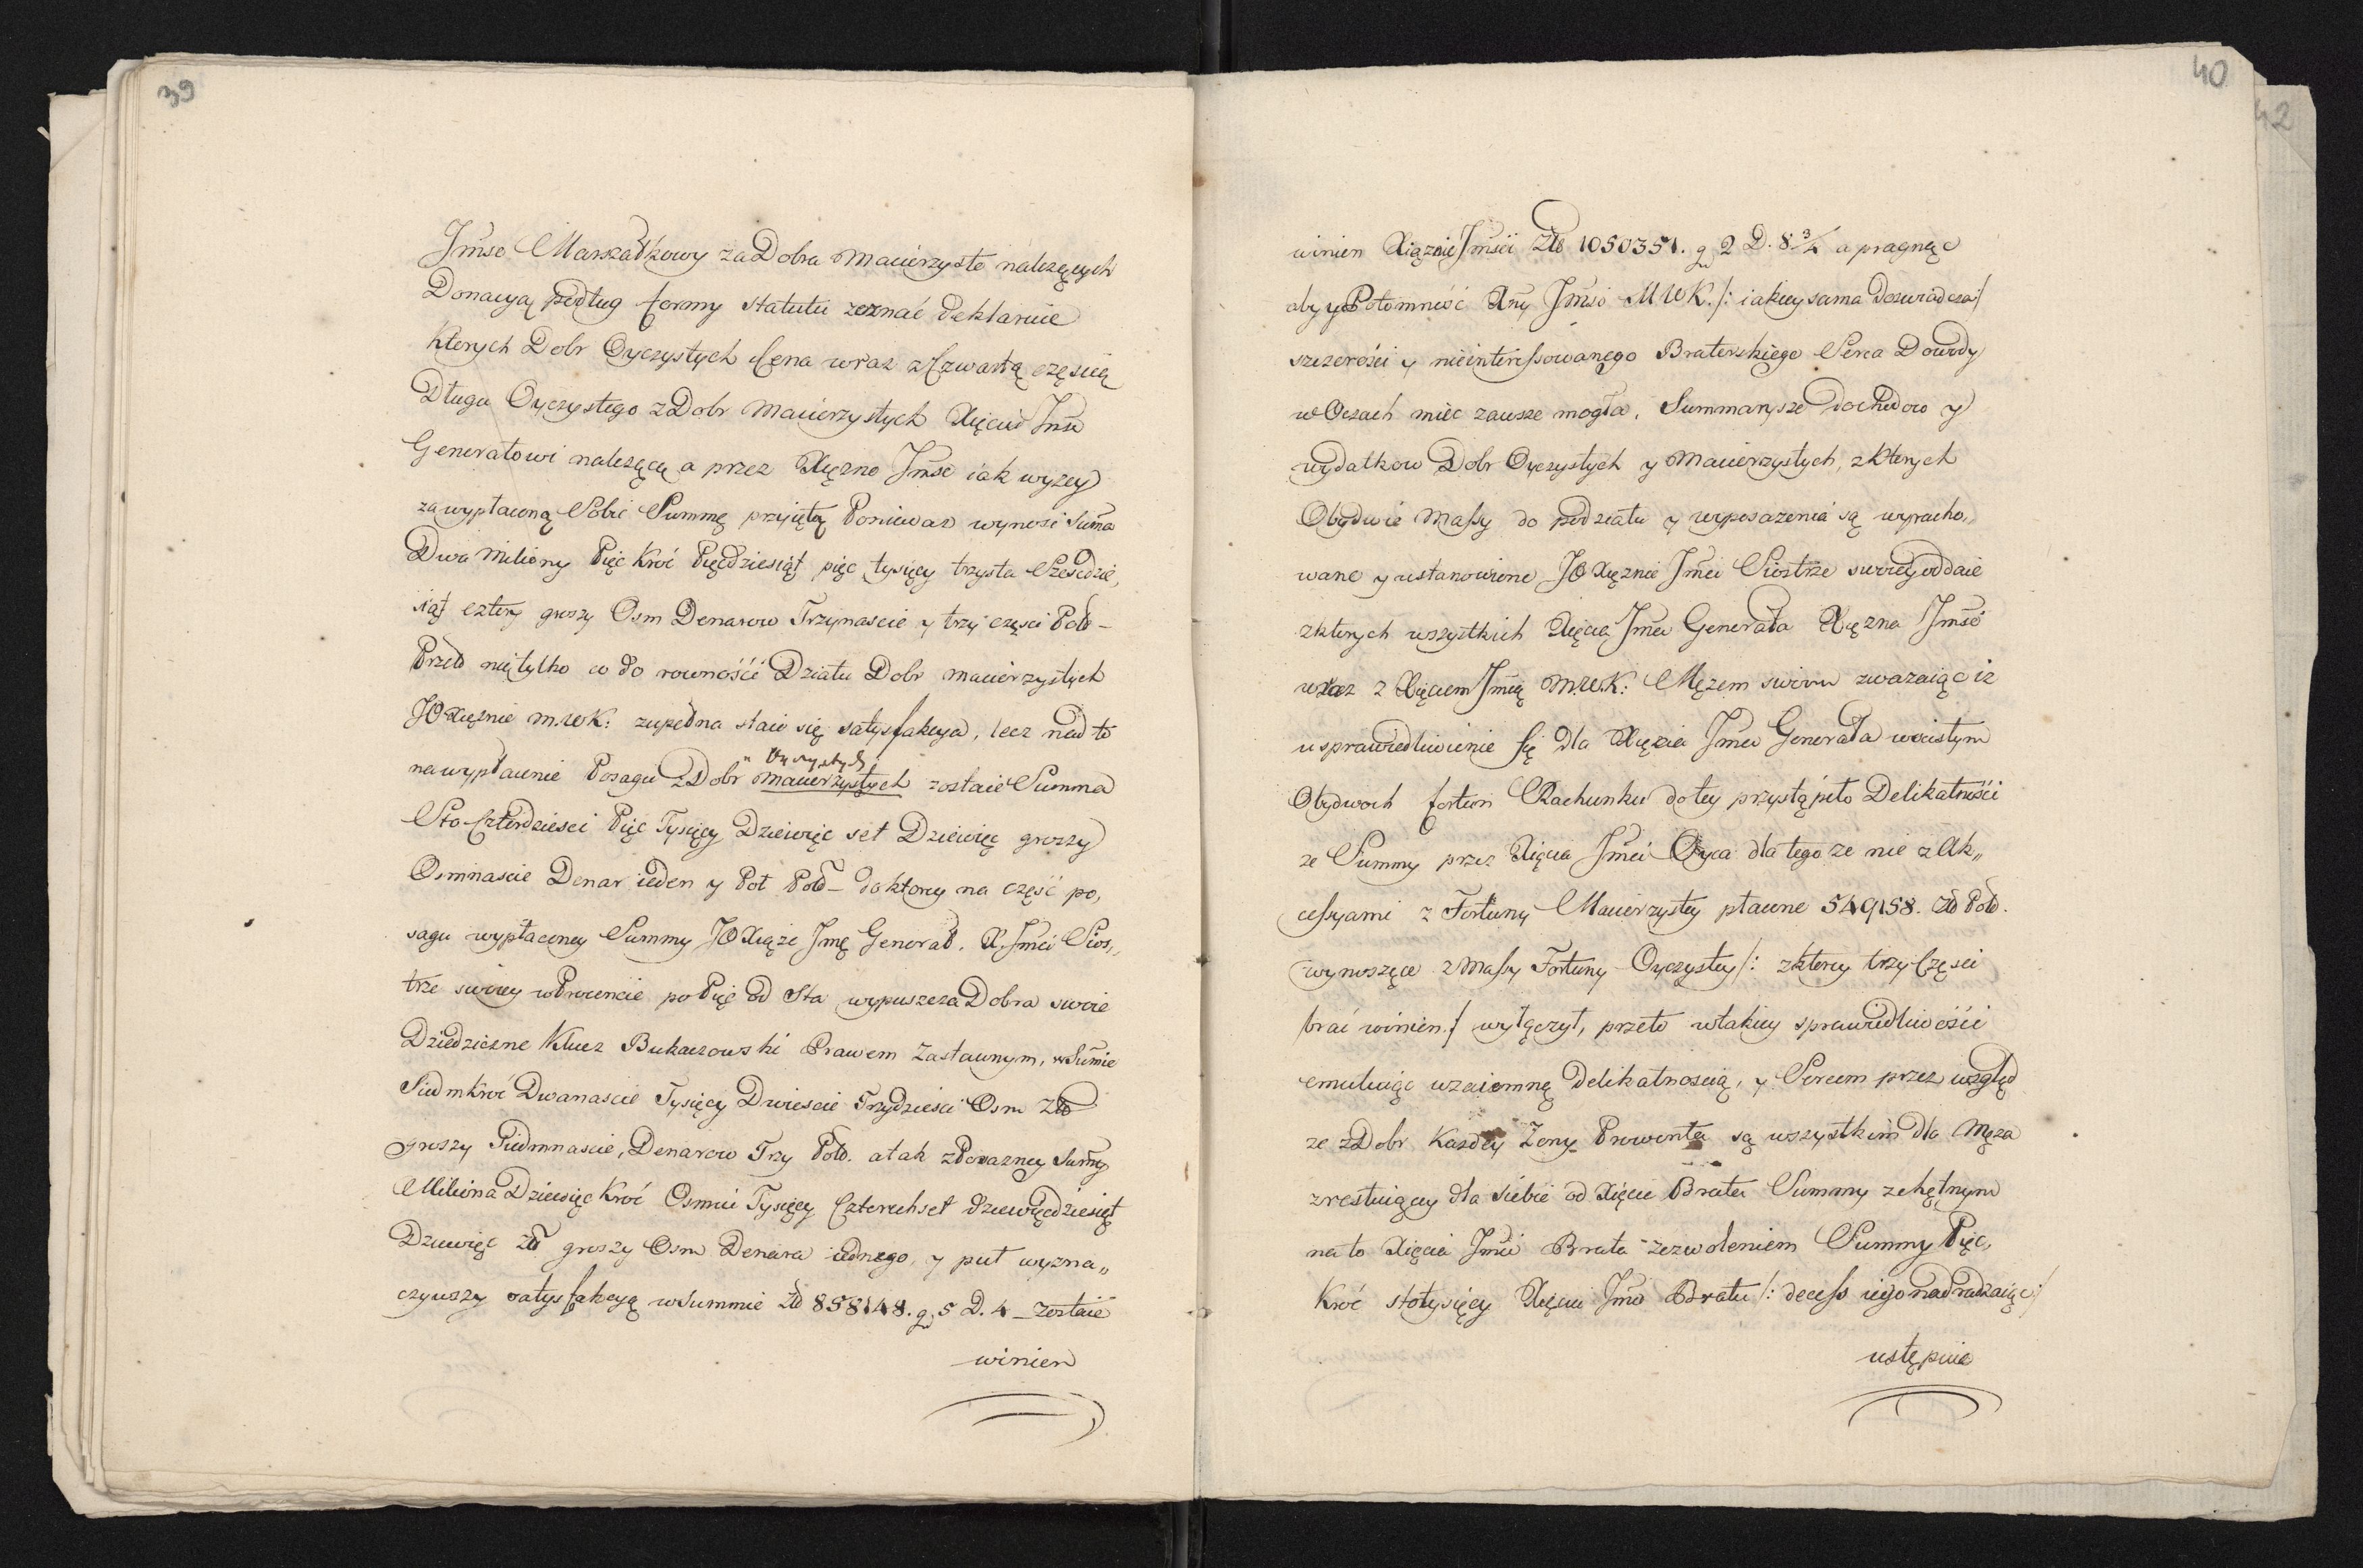 39
Jmśc Marszałkowy za Dobra Macierzyste należących
Donacyą podług formy statutu zeznać deklaruie
Ktorych Dobr Oyczystych Cena wraz z Czwartą częścią
Długu Oyczystego z Dobr Macierzystych Xięciu Jmśc
Generałowi należącą a przez Xiężnę Jmśc iak wyzey
za wypłaconą Sobie Summę przyiętą Poniewaz wynosi Suma
Dwa Miliony Pięc Kroć Pięcdziesiąt pięc tysięcy trzysta Sześcdzie,
siąt cztery groszy Osm Denarow Trzynascie y trzy częsci Pold –
Przeto nietylko co do rowności Działu Dobr macierzystych
JO Xięznie M.W.K: zupełna staie się satysfakcya, lecz nadto
na wypłacenie Posagu z Dobr macierzystych zostaie Summa
Oyczystych
Sto Czterdziesci Pięc Tysięcy Dziewięc set Dziewięć groszy
Osmnascie Denar ieden y Poł Pold – do ktorey na część po,
sagu wypłaconey Summy JO Xiąze Jmę Generał. X. Jmci Sios,,
trze swoiey w Prowencie po Pięc od Sta wypuszcza Dobra swoie
Dziedziczne Klucz Bukaczowski Prawem Zastawnym, w Sumie
Siedmkroć Dwanascie Tysięcy Dwiescie Trzydziesci Osm Złd
groszy Siedmnascie, Denarow Trzy Pold. a tak z Posazney Sumy
Miliona Dziewięc Kroć Osmiu Tysięcy Czterechset dziewięcdziesiąt
Dziewięc złd groszy Osm Denara iednego, y puł wyzna,,
czywszy satysfakcyą w Summie złd 858148. g. 5 D. 4 – zostaie
winien
40
42
winien Xiąznie Jmści Złd 1050351. g. 2 D. 8 3/4 a pragnąc
aby y Potomność Xny Jmśc M W K. /: iak iey sama Doswiadcza :/
szczerości y nieinteressowanego Braterskiego Serca Dowody
w Oczach miec zawsze mogła, Summarysze dochodow y
wydatkow Dobr Oyczystych y Macierzystych, z Ktorych
Obydwie Massy do podziału y wyposazenia są wyracho,,
wane y ustanowione JO Xięznie Jmci Siostrze swoiey oddaie
z ktorych wszystkich Xięcia Jmci Generała Xięzna Jmść
wraz z Xięciem Jmcią M.W.K: Męzem swoim zwazaiąc iz
usprawiedliwienie się dla Xięcia Jmci Generała w czystym
Obydwoch fortun Rachunku do tey przystąpiło Delikatności
ze Summy przez Xięcia Jmci Oyca dla tego ze nie z Ak,,
cessyami z Fortuny Macierzystey płacone 549158. złd Pold.
wynoszące z Massy Fortuny Oyczystey /: z ktorey trzy Częsci
brać winien :/ wyłączył, przeto w takiey sprawiedliwości
emuluiąc wzaiemną delikatnoscią, y Sercem przez wzgląd
ze z Dobr Kazdey Zony Prowenta są wszystkim dla Męza
z restuiącey dla siebie od Xięcia Brata Summy z chętnym
na to Xięcia Jmci Brata zezwoleniem Summy Pięc,
Kroć sto tysięcy Xięciu Jmć Bratu /: decess iego nadradzaiąc :/
ustępuie